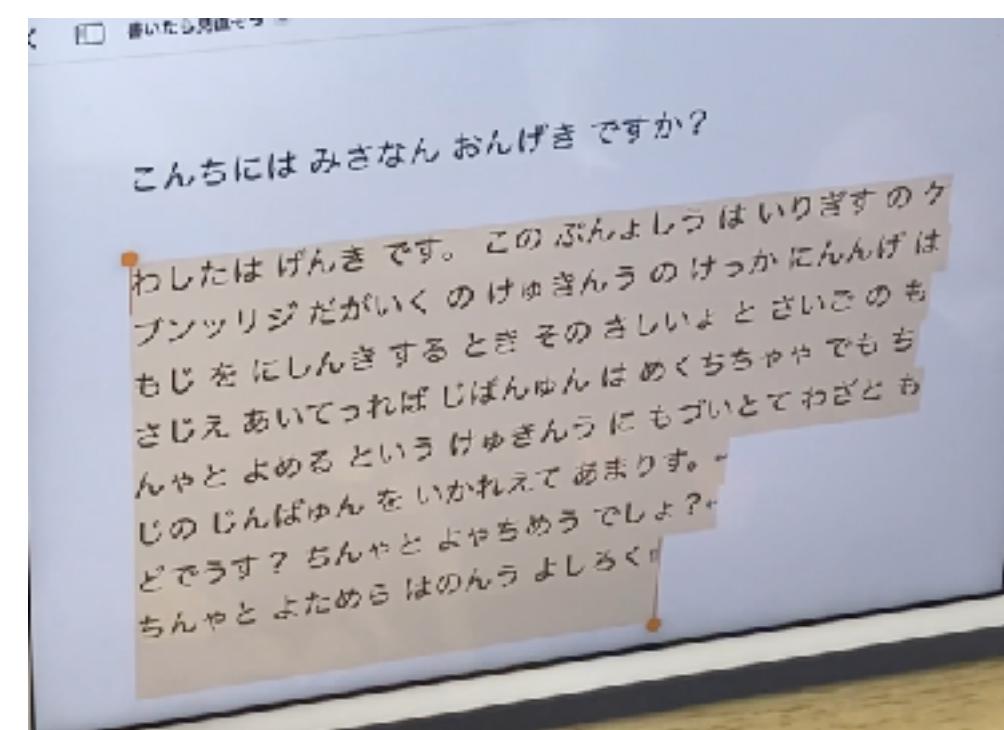 書いたら見直そう
こんちには みさなん おんげき ですか？
わしたは げんき です。 この ぶんょしう は いりぎす の ケ
ブンッリジ だがいく の けゅきんう の けっか にんんげ は
もじ を にしんき する とき その さしいょ と さいご の も
さじえ あいてっれば じばんゅん は めくちちゃや でも ち
んゃと よめる という けゅきんう に もづいとて わざと も
じの じんばゅん を いかれえて あまりす。
どでうす？ ちんゃと よゃちめう でしょ？
ちんゃと よためら はのんう よしろく